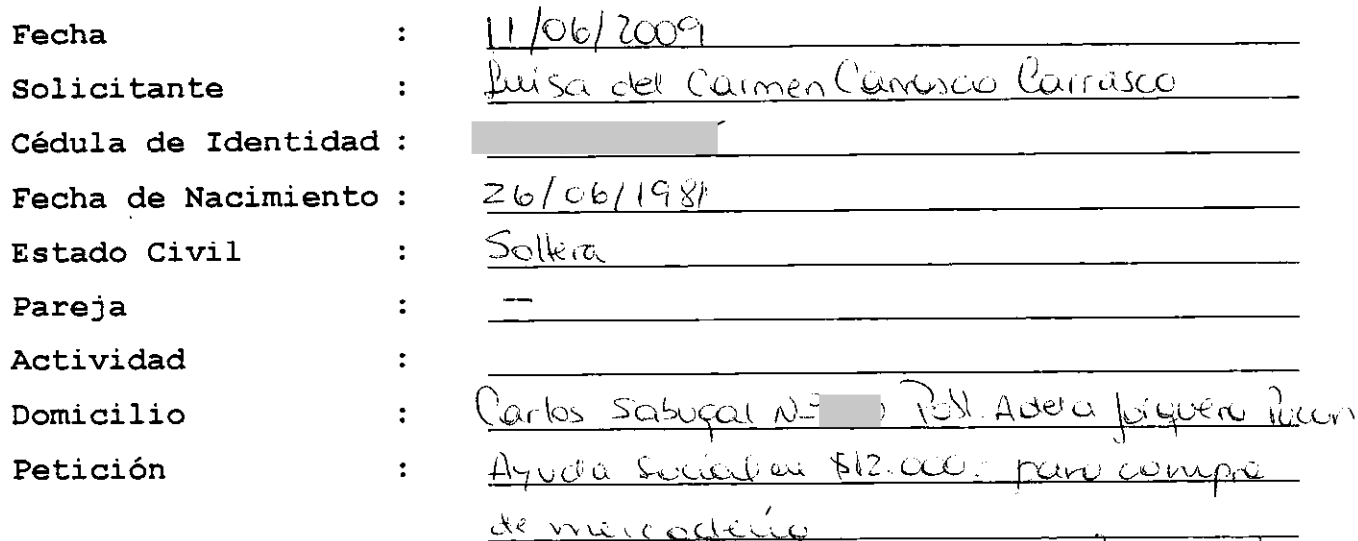 Fecha : 11/06/2009
Solicitante : Luisa del Carmen Carrasco Carrasco
Cédula de Identidad :
Fecha de Nacimiento : 26/06/1981
Estado Civil : Soltera
Pareja : —
Actividad :
Domicilio : Carlos Sabugal Nº Pobl. Adela
Petición : Ayuda Social en $12.000.- para compra
de mercadería